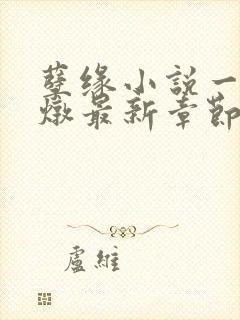 孽缘小説一
燉最新章節
盧維